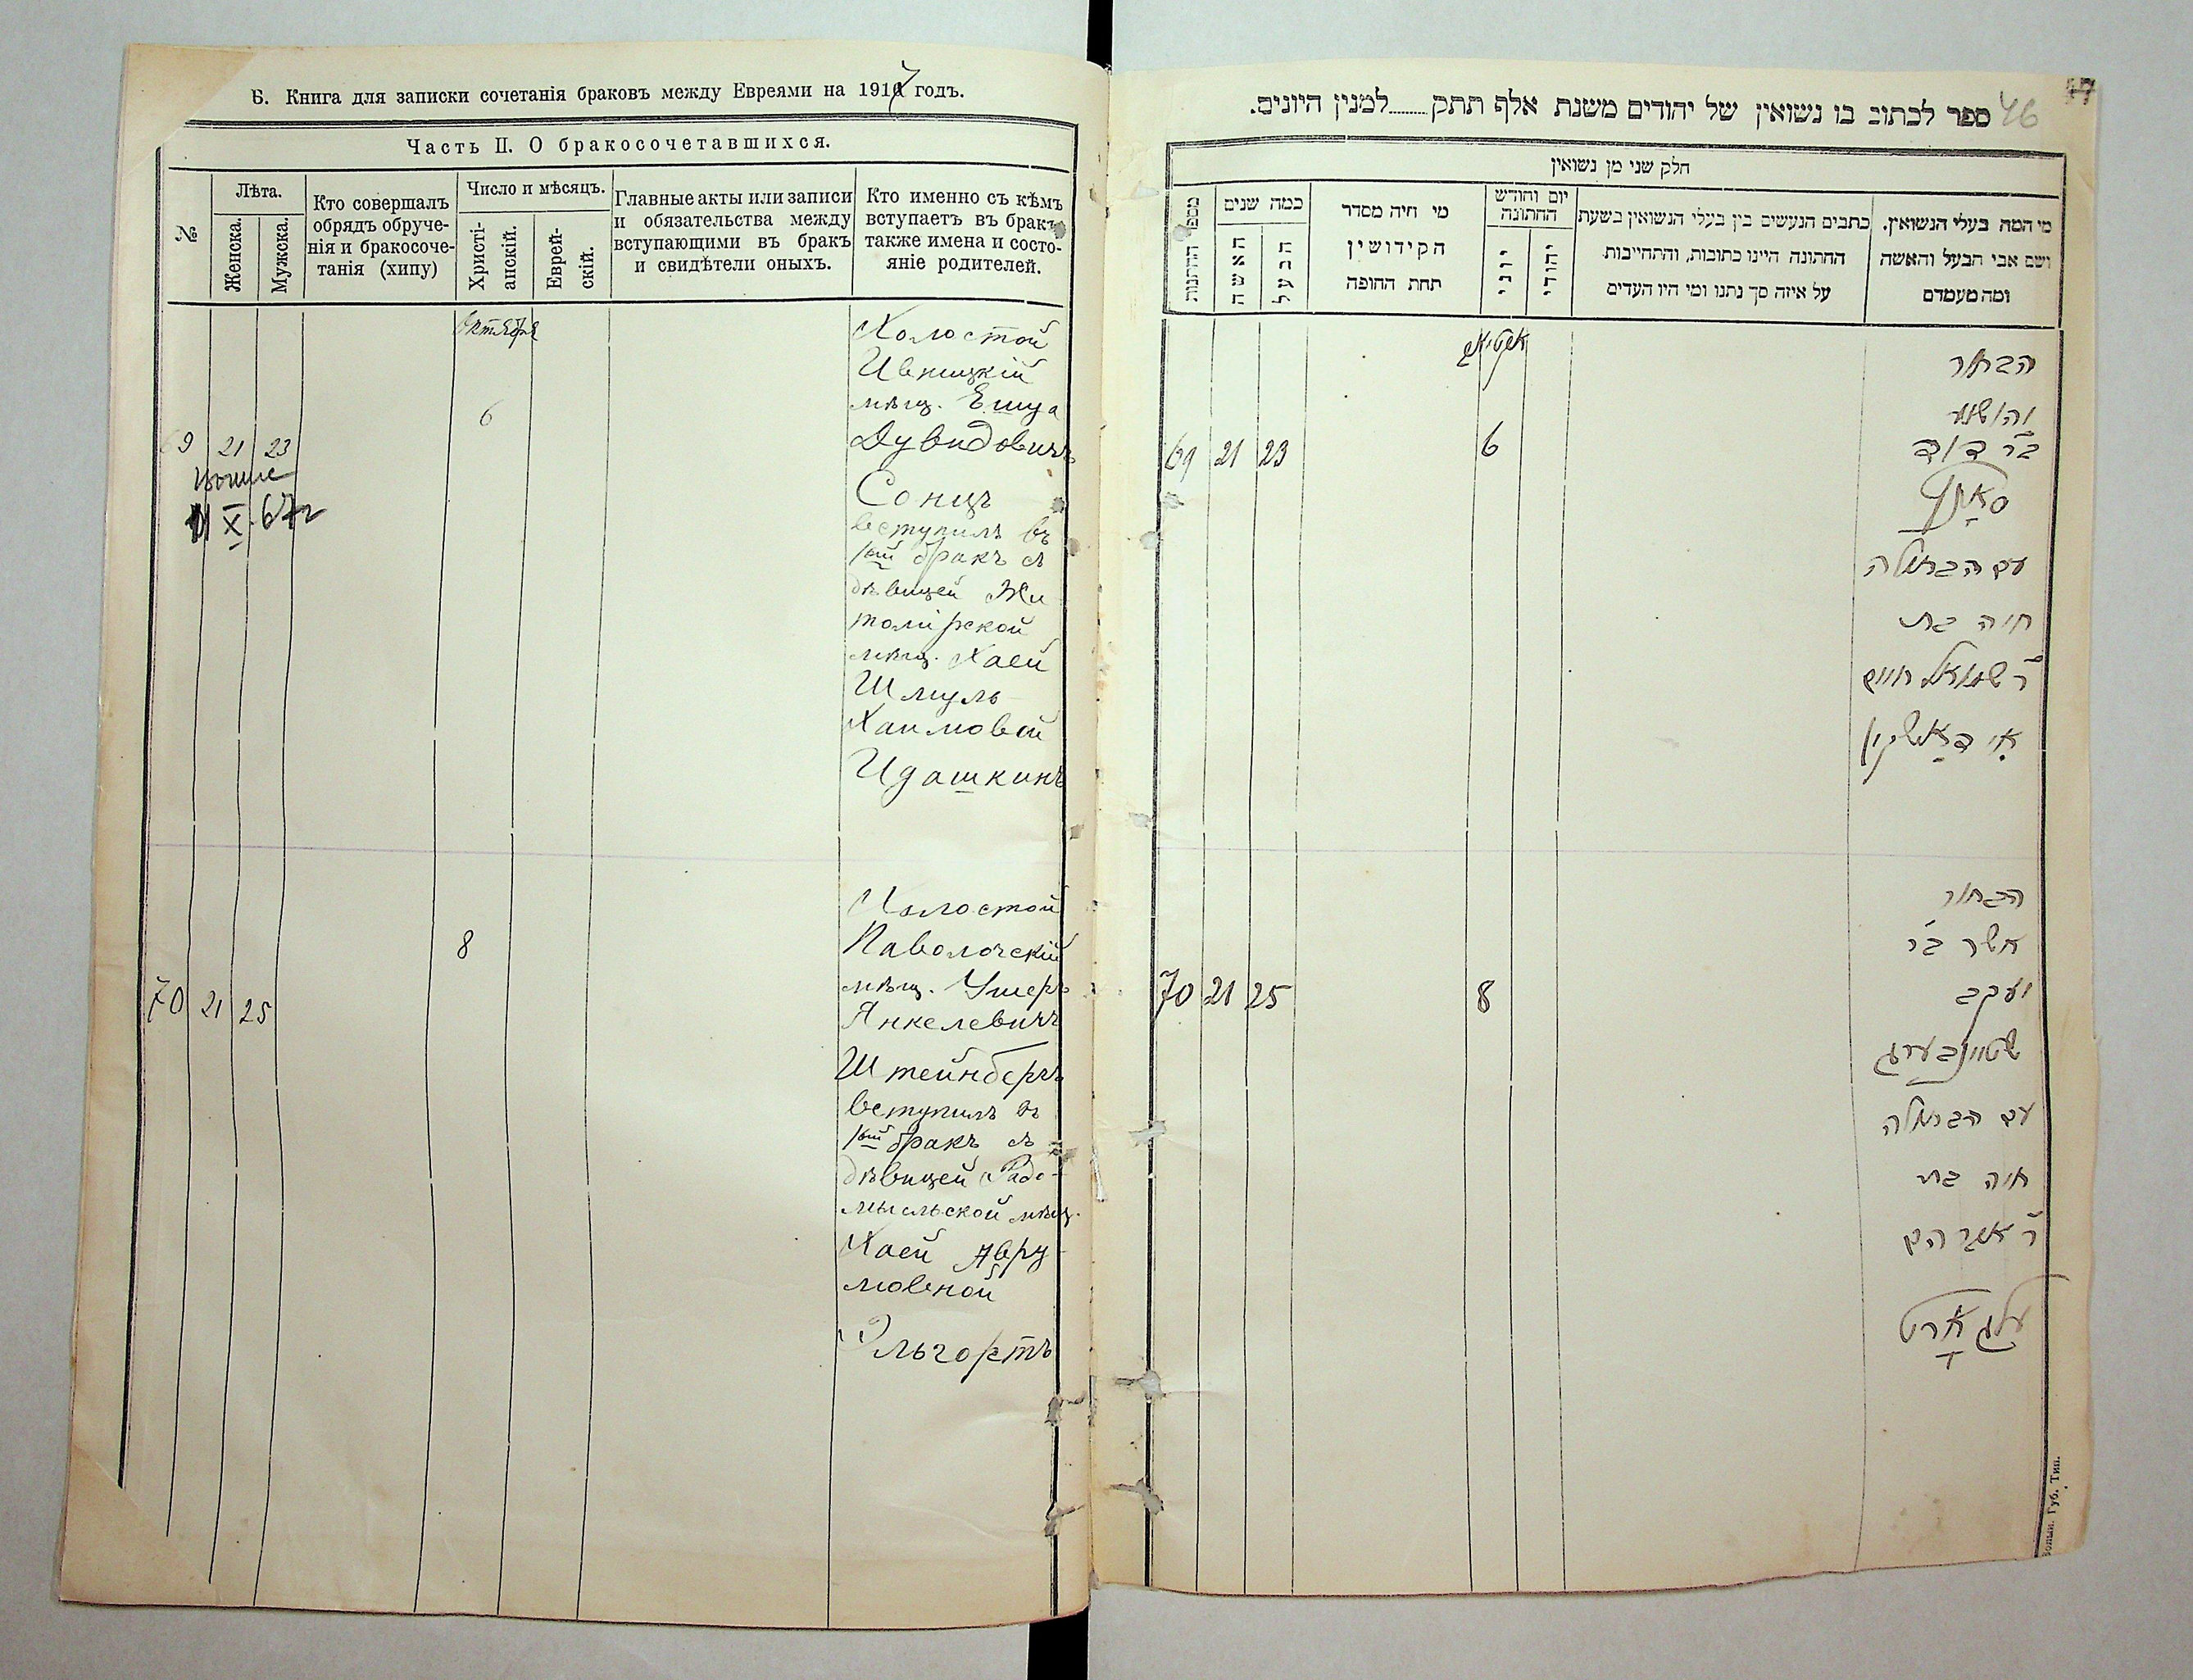 Б. Книга для записки сочетанія браковъ между Евреями на 1917 годъ.
Часть II. О бракосочетавшихся.
№
Лѣта.
Женска.
Мужска.
Кто совершалъ
обрядъ обруче-
нія и бракосоче-
танія (хипу)
Число и мѣсяцъ.
Христі-
анскій.
Еврей-
скій.
Главные акты или записи
и обязательства между
вступающими въ бракъ
и свидѣтели оныхъ.
Кто именно съ кѣмъ
вступаетъ въ бракъ,
также имена и состо-
яніе родителей.
Октября
69 21 23
6
X 67г
Холостой
Ивницкій
мѣщ. Ешуа
Дувидовичъ
Сонцъ
вступилъ въ
1ый бракъ съ
дѣвицей Жи
томірской
мѣщ. Хаей
Шмуль
Хаимовой
Идашкинъ
70 21 25
8
Холостой
Паволочскій
мѣщ. Ушеръ
Янкелевичъ
Штейнбергъ
вступилъ въ
1ый бракъ съ
дѣвицей Радо-
мысльской мѣщ.
Хаей Авру-
мовной
Эльгортъ
46
47
ספר לכתוב בו נשואין של יהודים משנת אלף תתק........למנין היונים.
חלק שני מן נשואין
מספר החתונות
כמה שנים
האשה
הבעל
מי היה מסדר
הקידושין
תחת החופה
יום וחודש
החתונה
יוני
יהודי
כתבים הנעשים בין בעלי הנשואין בשעת
החתונה היינו כתובות, והתחייבות
על איזה סך נתנו ומי היו העדים
מי המה בעלי הנשואין.
ושם אבי הבעל והאשה
ומה מעמדם
69 21 23
6
הבחור
יהושע
ב״ר דוד
סאנץ
עם הבתולה
חיה בת
ר׳ שמואל חיים
אידאשקין
70 21 25
8
הבחור
אשר ב״ר
יעקב
שטיינבערג
עם הבתולה
חיה בת
ר׳ אברהם
עלגארט
Волын. Губ. Тип.